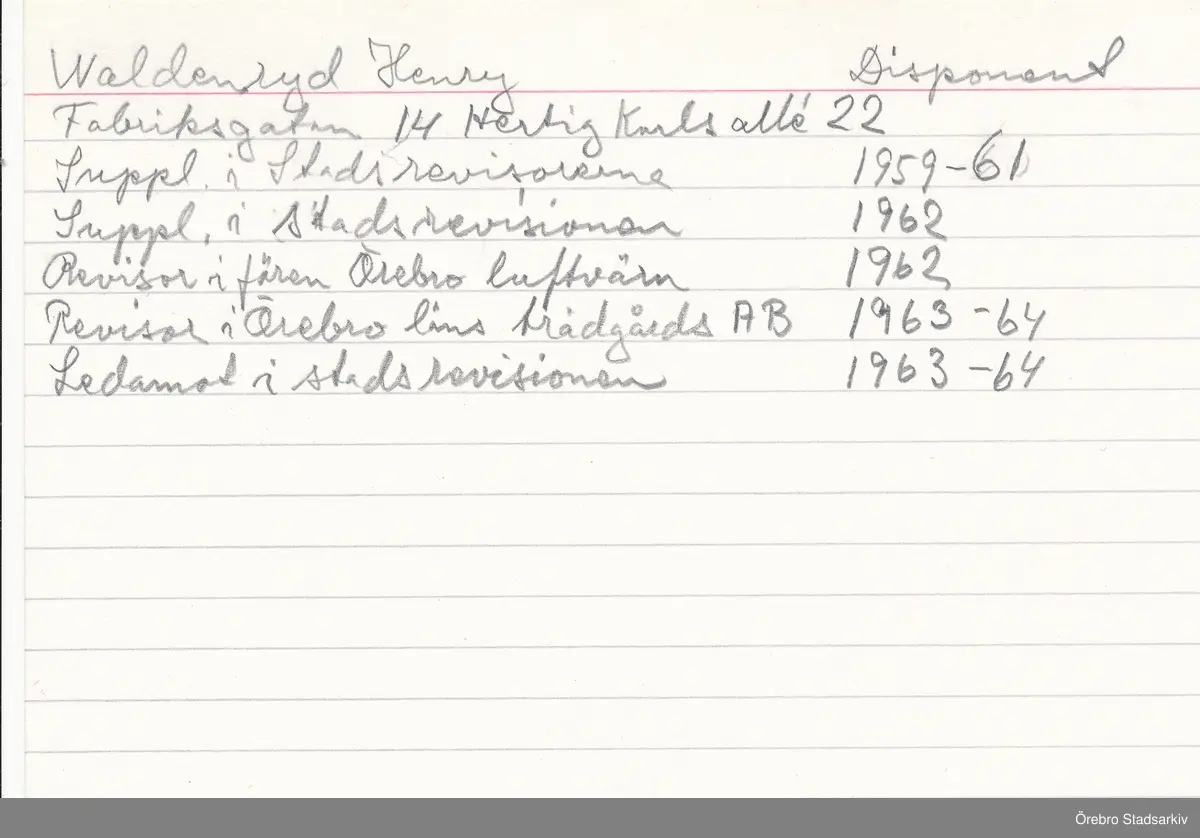 Waldenryd Henry Disponent
Fabriksgatan 14 Hertig Karls allé 22
Suppl. i Stadsrevisorerna 1959-61
Suppl. i stadsrevisionen 1962
Revisor i fören Örebro luftvärn 1962
Revisor i Örebro läns trädgårds AB 1963-64
Ledamot i stadsrevisionen 1963-64
Örebro Stadsarkiv